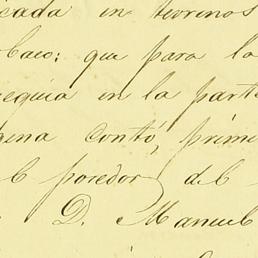 icada en terrenos
baco: que para la
equia en la parte
gena contó, prime
l poredor del
D. Manuel